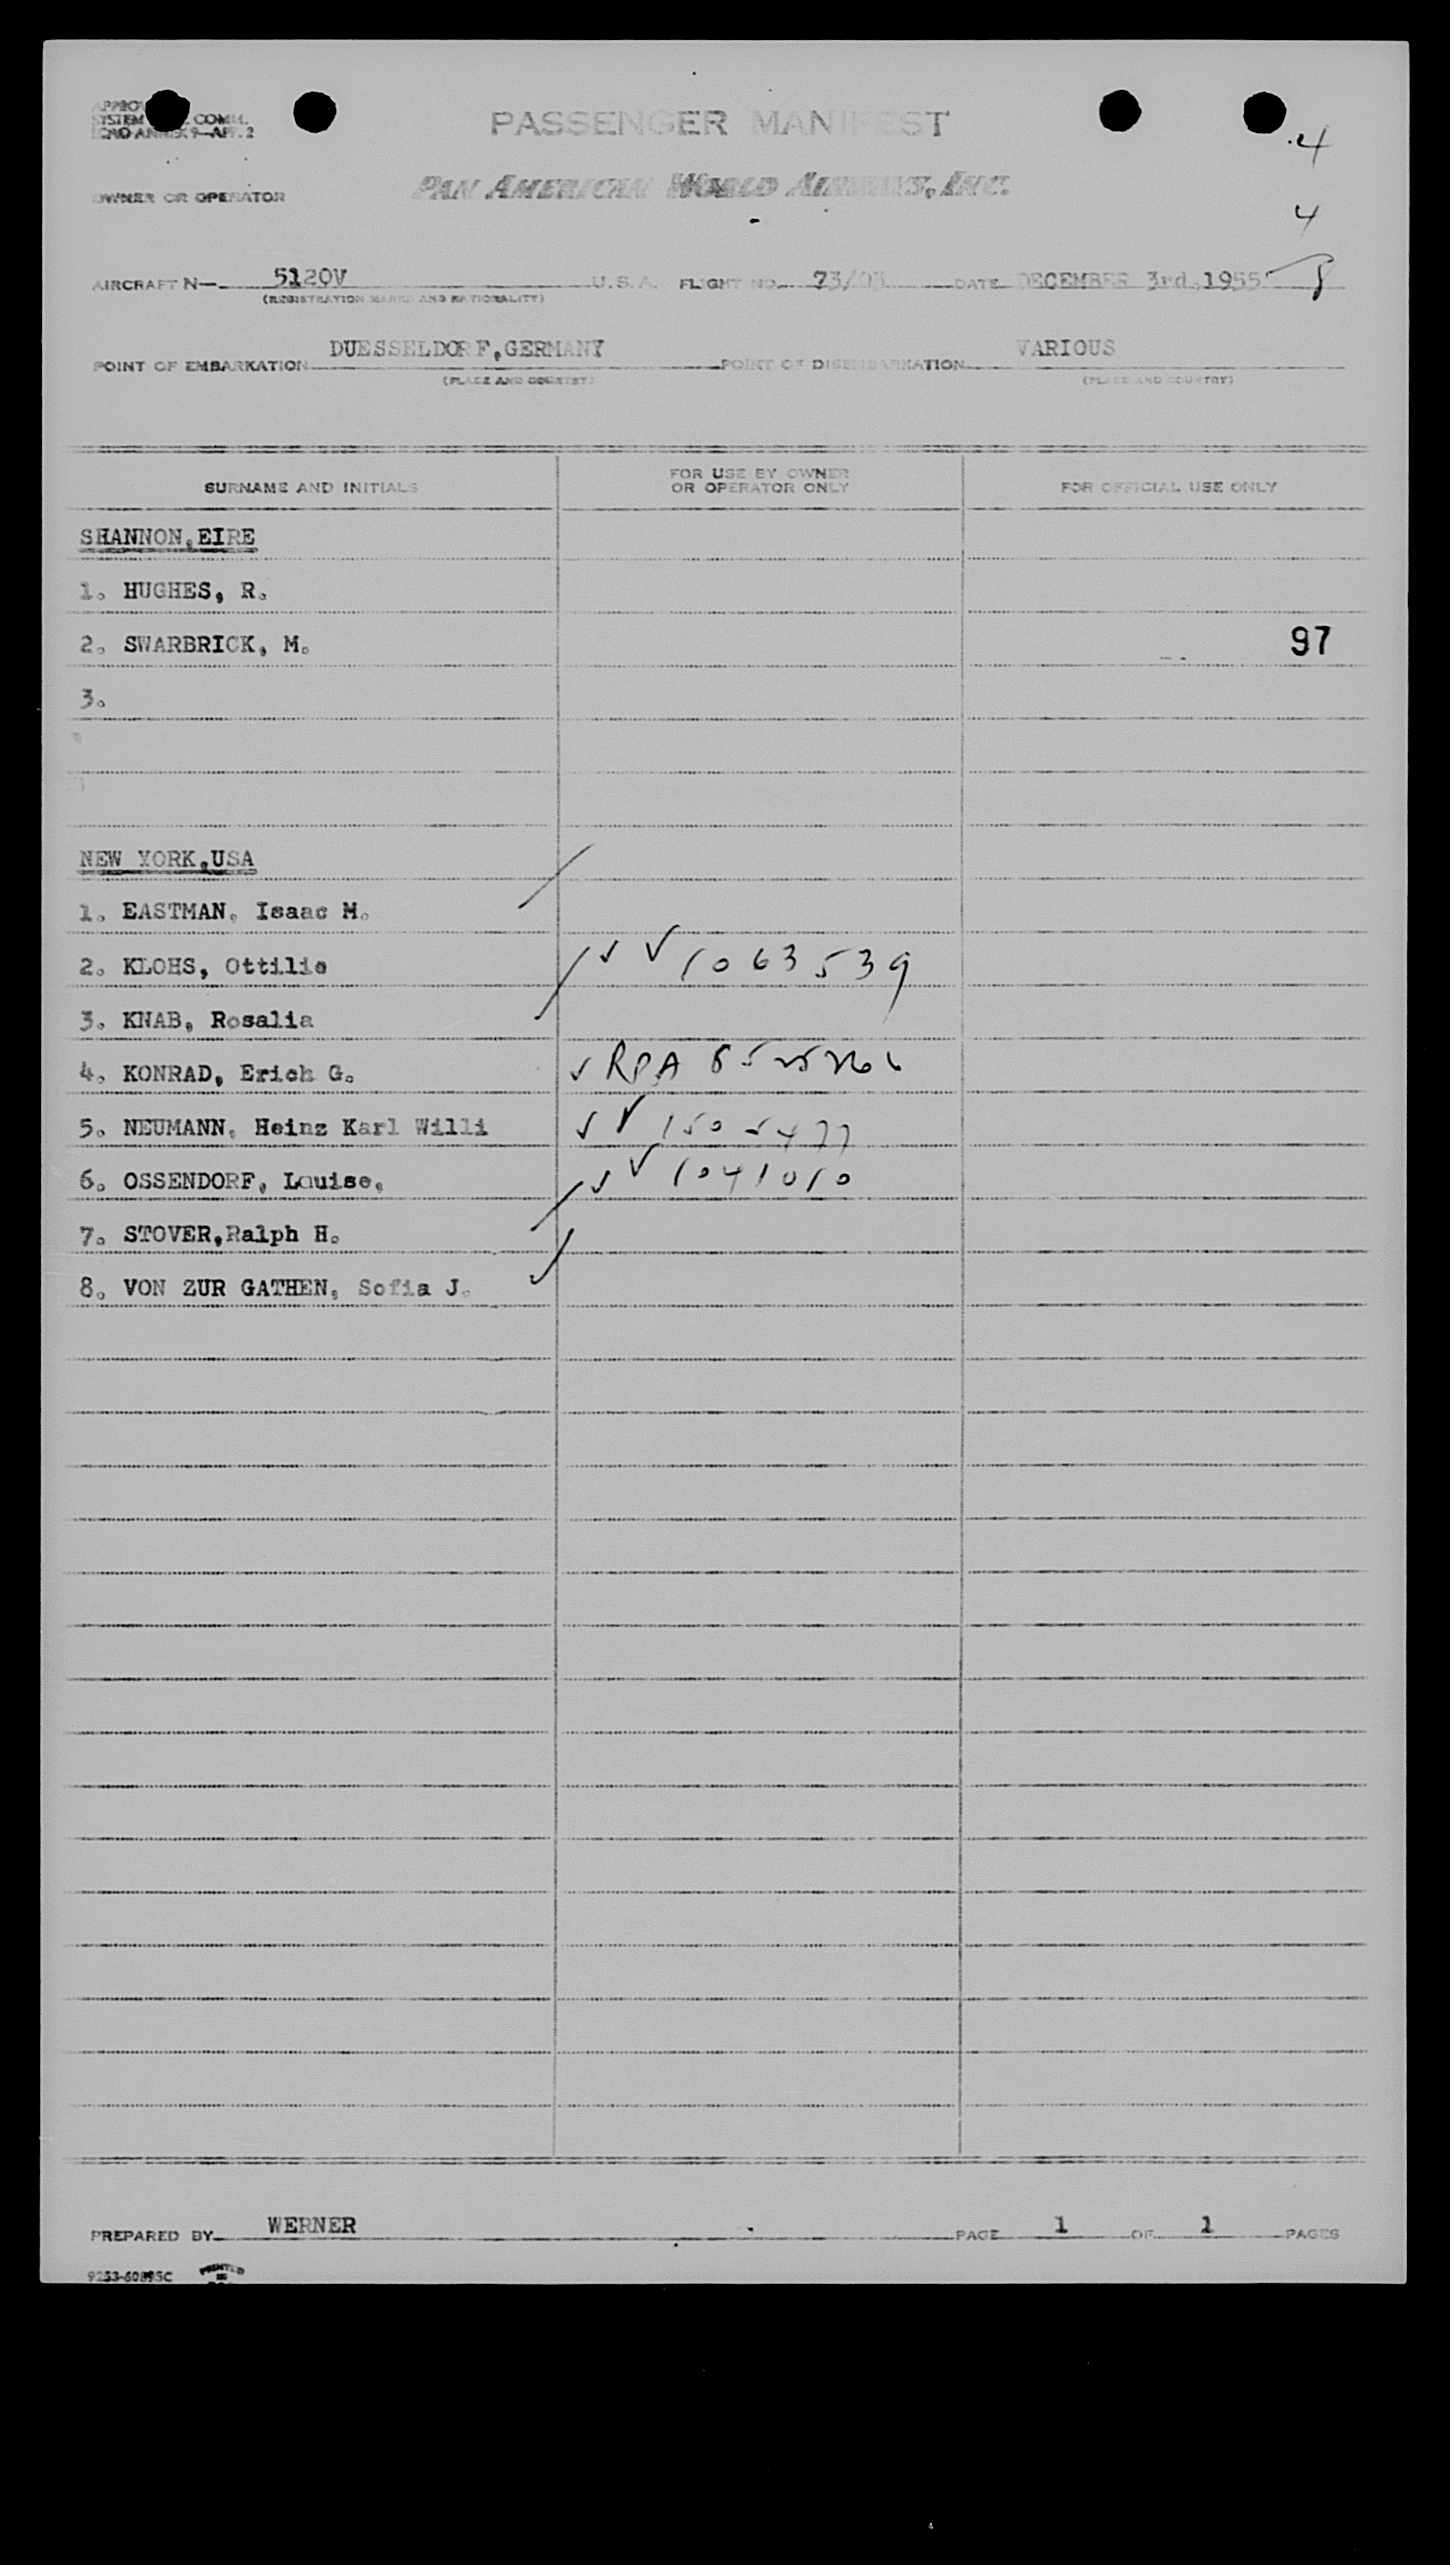 SYSTEM COMM.
ICAO ANNEX 9—APP. 2
PASSENGER MANIFEST
4
OWNER OR OPERATOR PAN AMERICAN WORLD AIRWAYS, INC.
4
AIRCRAFT N— 5120V U.S.A. FLIGHT NO. 73/03 DATE DECEMBER 3rd,1955 8
(REGISTRATION MARKS AND NATIONALITY)
POINT OF EMBARKATION DUESSELDORF,GERMANY POINT OF DISEMBARKATION VARIOUS
(PLACE AND COUNTRY) (PLACE AND COUNTRY)
SURNAME AND INITIALS FOR USE BY OWNER OR OPERATOR ONLY FOR OFFICIAL USE ONLY
SHANNON,EIRE
1. HUGHES, R.
2. SWARBRICK, M. 97
3.
NEW YORK,USA
1. EASTMAN, Isaac M.
2. KLOHS, Ottilie ✓ ✓ 1063539
3. KNAB, Rosalia
4. KONRAD, Erich G. ✓ RPA
5. NEUMANN, Heinz Karl Willi ✓ ✓ 1505477
6. OSSENDORF, Louise, ✓ ✓ 1041010
7. STOVER,Ralph H.
8. VON ZUR GATHEN, Sofia J.
PREPARED BY WERNER PAGE 1 OF 1 PAGES
9253-60895C PRINTED IN